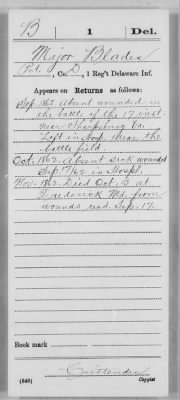 B | 1 | Del.
Major Blades
Pvt., Co. D, 1 Reg't Delaware Inf.
Appears on Returns as follows:
Sep. 1862. Absent wounded in
the battle of the 17 inst.
near Sharpsburg
Left in hosp. near the
battlefield.
Oct. 1862. Absent sick wounded
Sep. 17/62 in Hospl.
Nov. 1862. Died Oct. 3 at
Frederick Md. from
wounds recd. Sep. 17.
Book mark
Crittenden
(546) Copyist